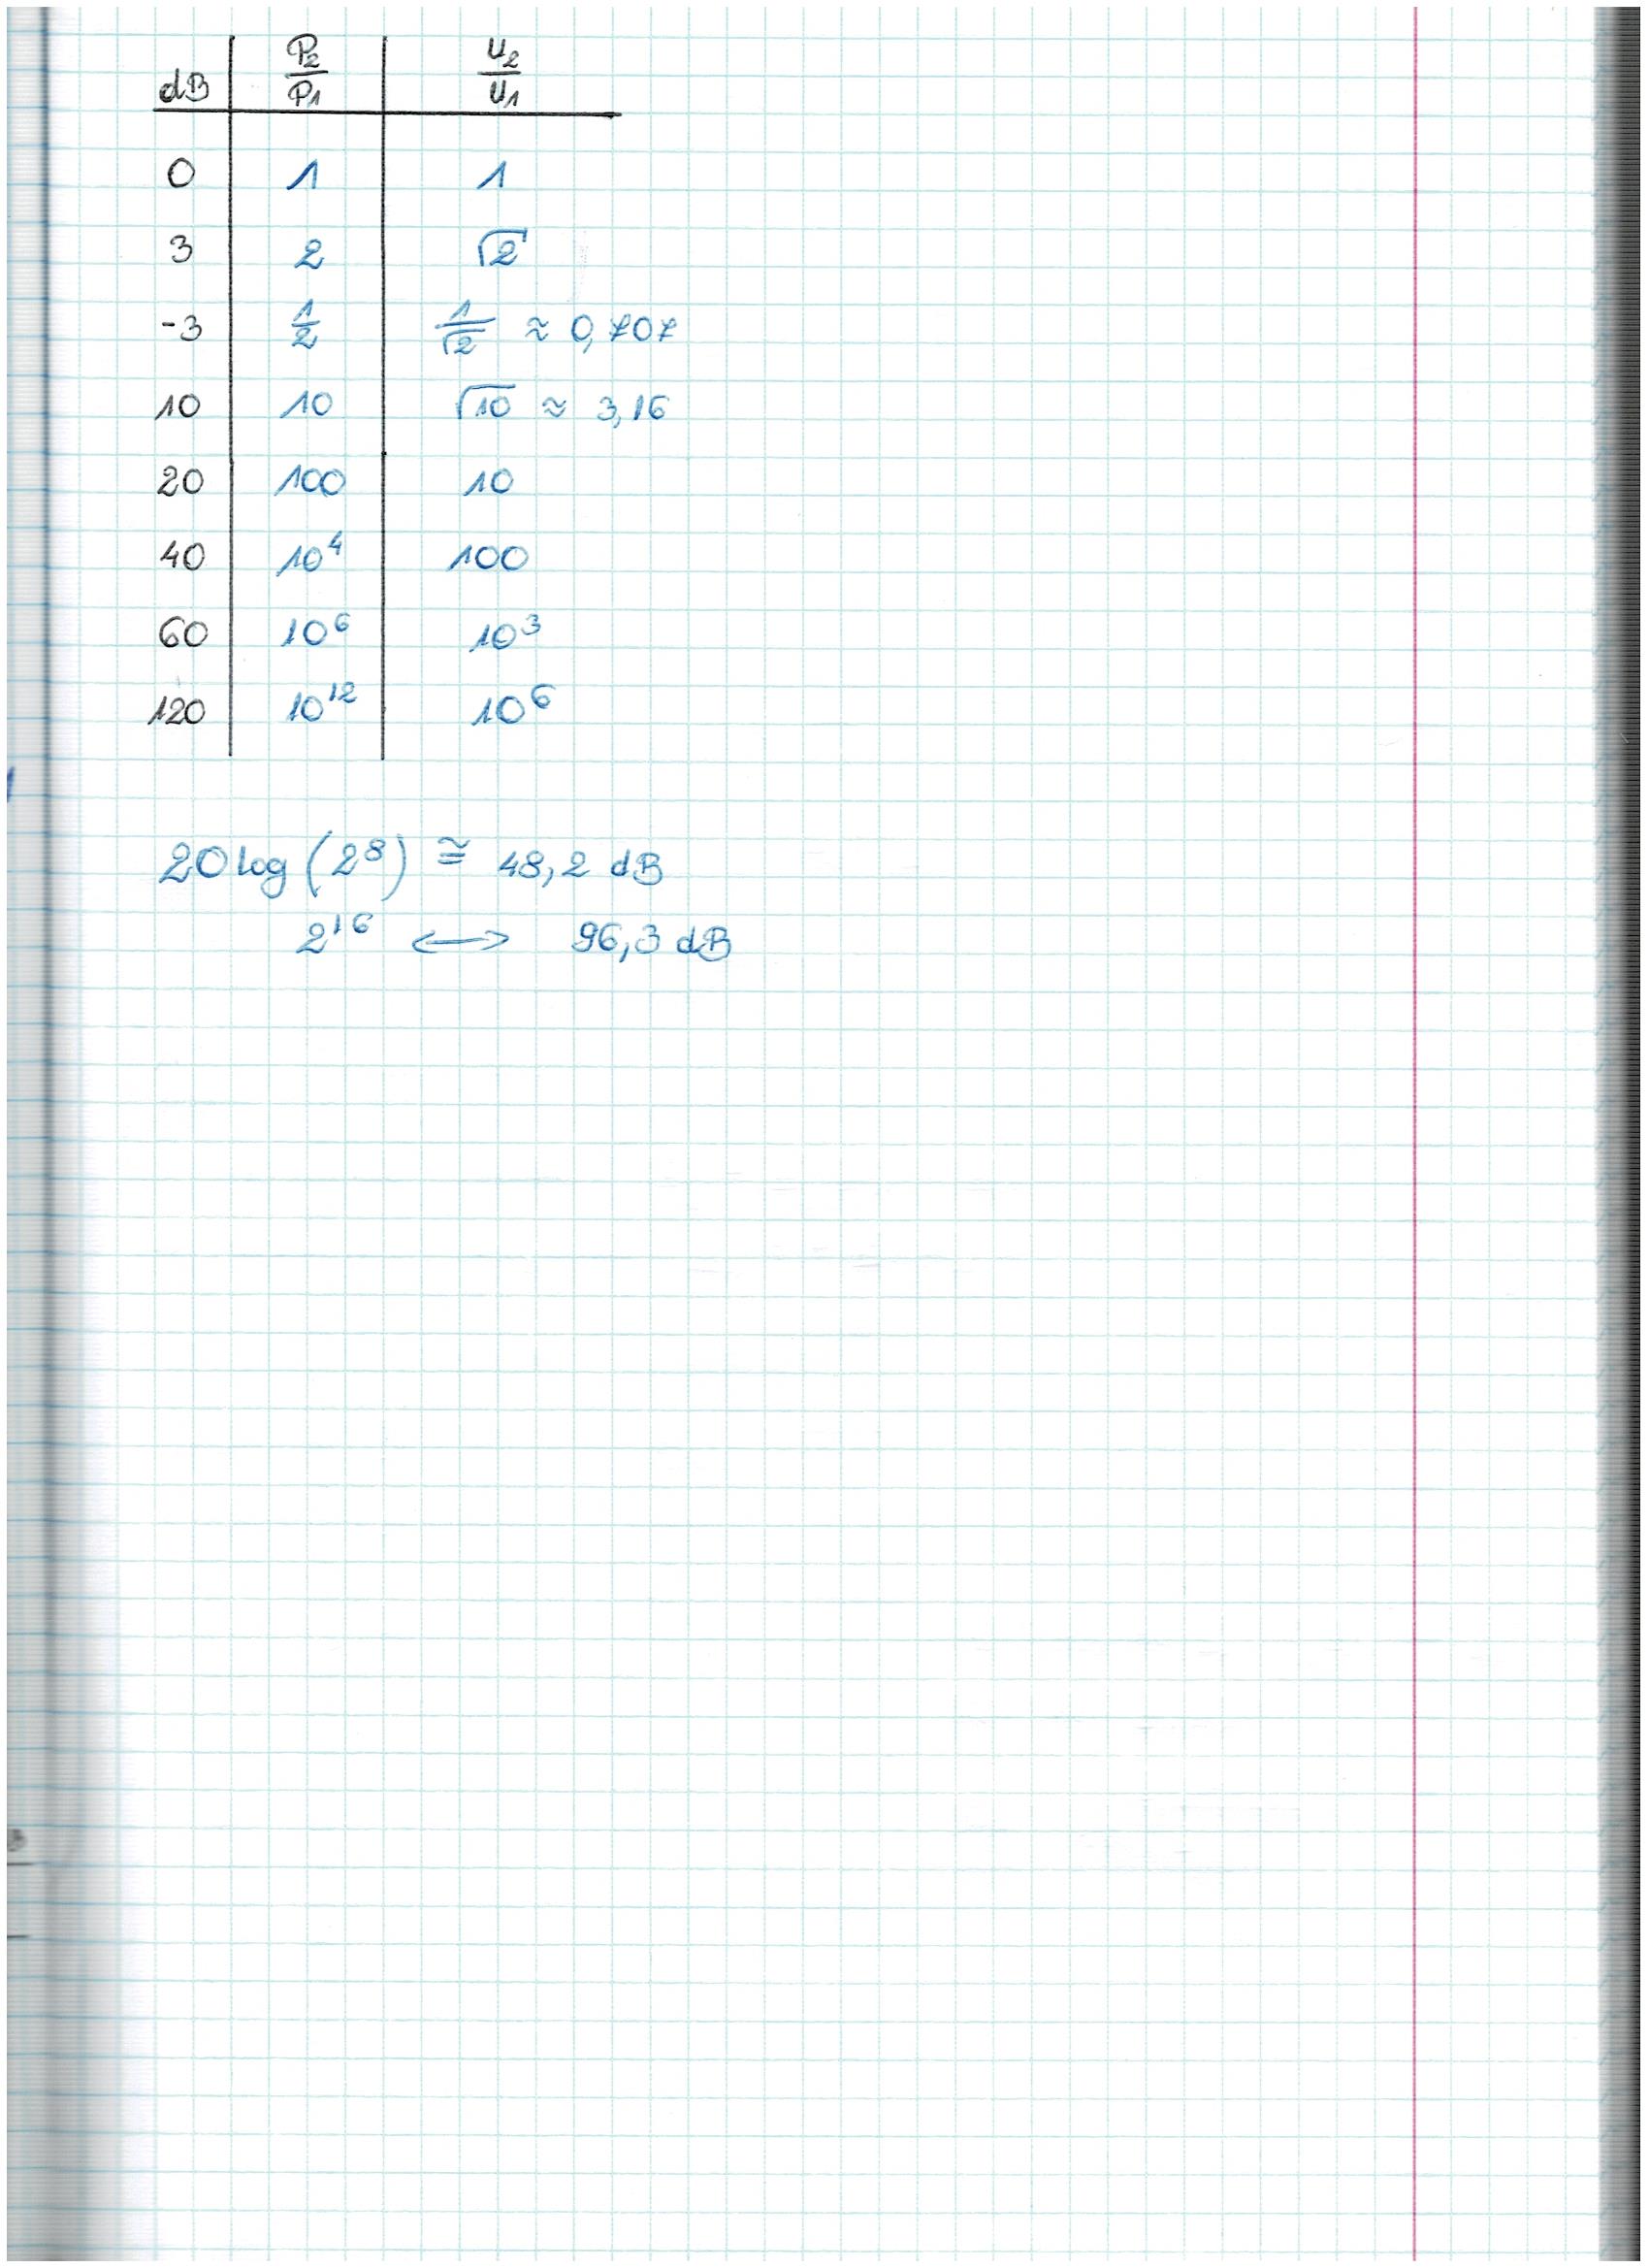 dB | P₂/P₁ | U₂/U₁
0 | 1 | 1
3 | 2 | √2
-3 | 1/2 | 1/√2 ≈ 0,707
10 | 10 | √10 ≈ 3,16
20 | 100 | 10
40 | 10⁴ | 100
60 | 10⁶ | 10³
120 | 10¹² | 10⁶
20 log (2⁸) ≅ 48,2 dB
2¹⁶ ⟷ 96,3 dB